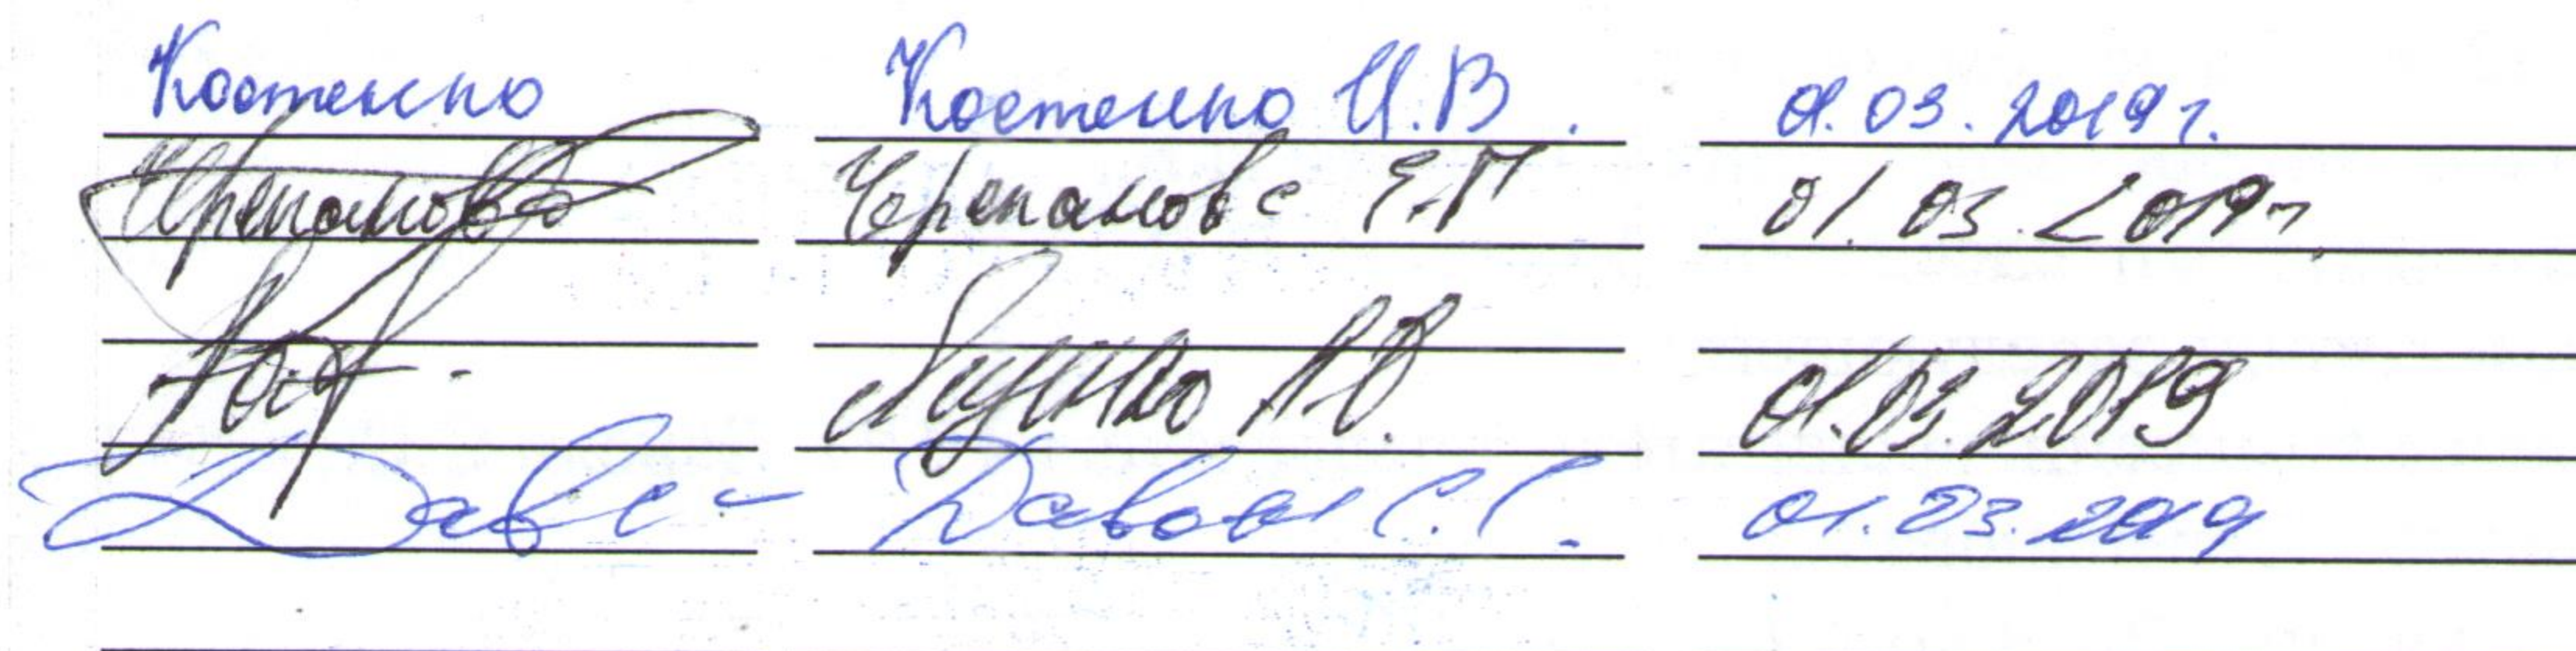 Костенко Костенко И.В. 01.03.2019г.
Черепанова Черепанова Е.П 01.03.2019г.
Луцико А.О. 01.03.2019
С.С. 01.03.2019